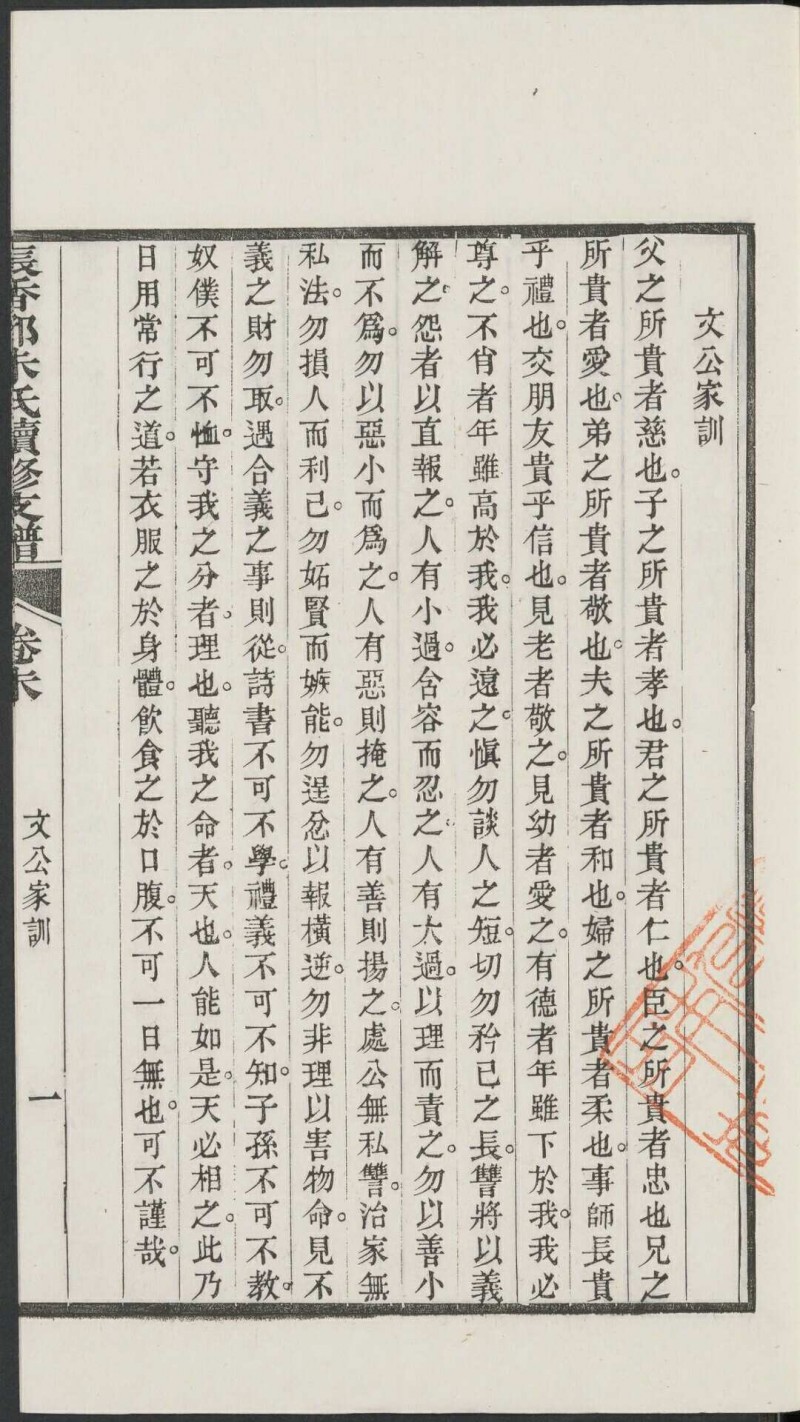 文公家訓
父之所貴者慈也。子之所貴者孝也。君之所貴者仁也。臣之所貴者忠也兄之
所貴者愛也。弟之所貴者敬也。夫之所貴者和也。婦之所貴者柔也。事師長貴
乎禮也。交朋友貴乎信也。見老者敬之。見幼者愛之。有德者年雖下於我。我必
尊之。不肖者年雖高於我。我必遠之。慎勿談人之短。切勿矜己之長。讐將以義
解之。怨者以直報之。人有小過。含容而忍之。人有大過。以理而責之。勿以善小
而不爲。勿以惡小而爲之。人有惡則掩之。人有善則揚之。處公無私讐。治家無
私法。勿損人而利己。勿妬賢而嫉能。勿逞忿以報橫逆。勿非理以害物命。見不
義之財勿取。遇合義之事則從。詩書不可不學。禮義不可不知。子孫不可不教。
奴僕不可不恤。守我之分者。理也。聽我之命者。天也。人能如是。天必相之。此乃
日用常行之道。若衣服之於身體。飲食之於口腹。不可一日無也。可不謹哉。
香 朱氏續修支譜 卷末 文公家訓 一